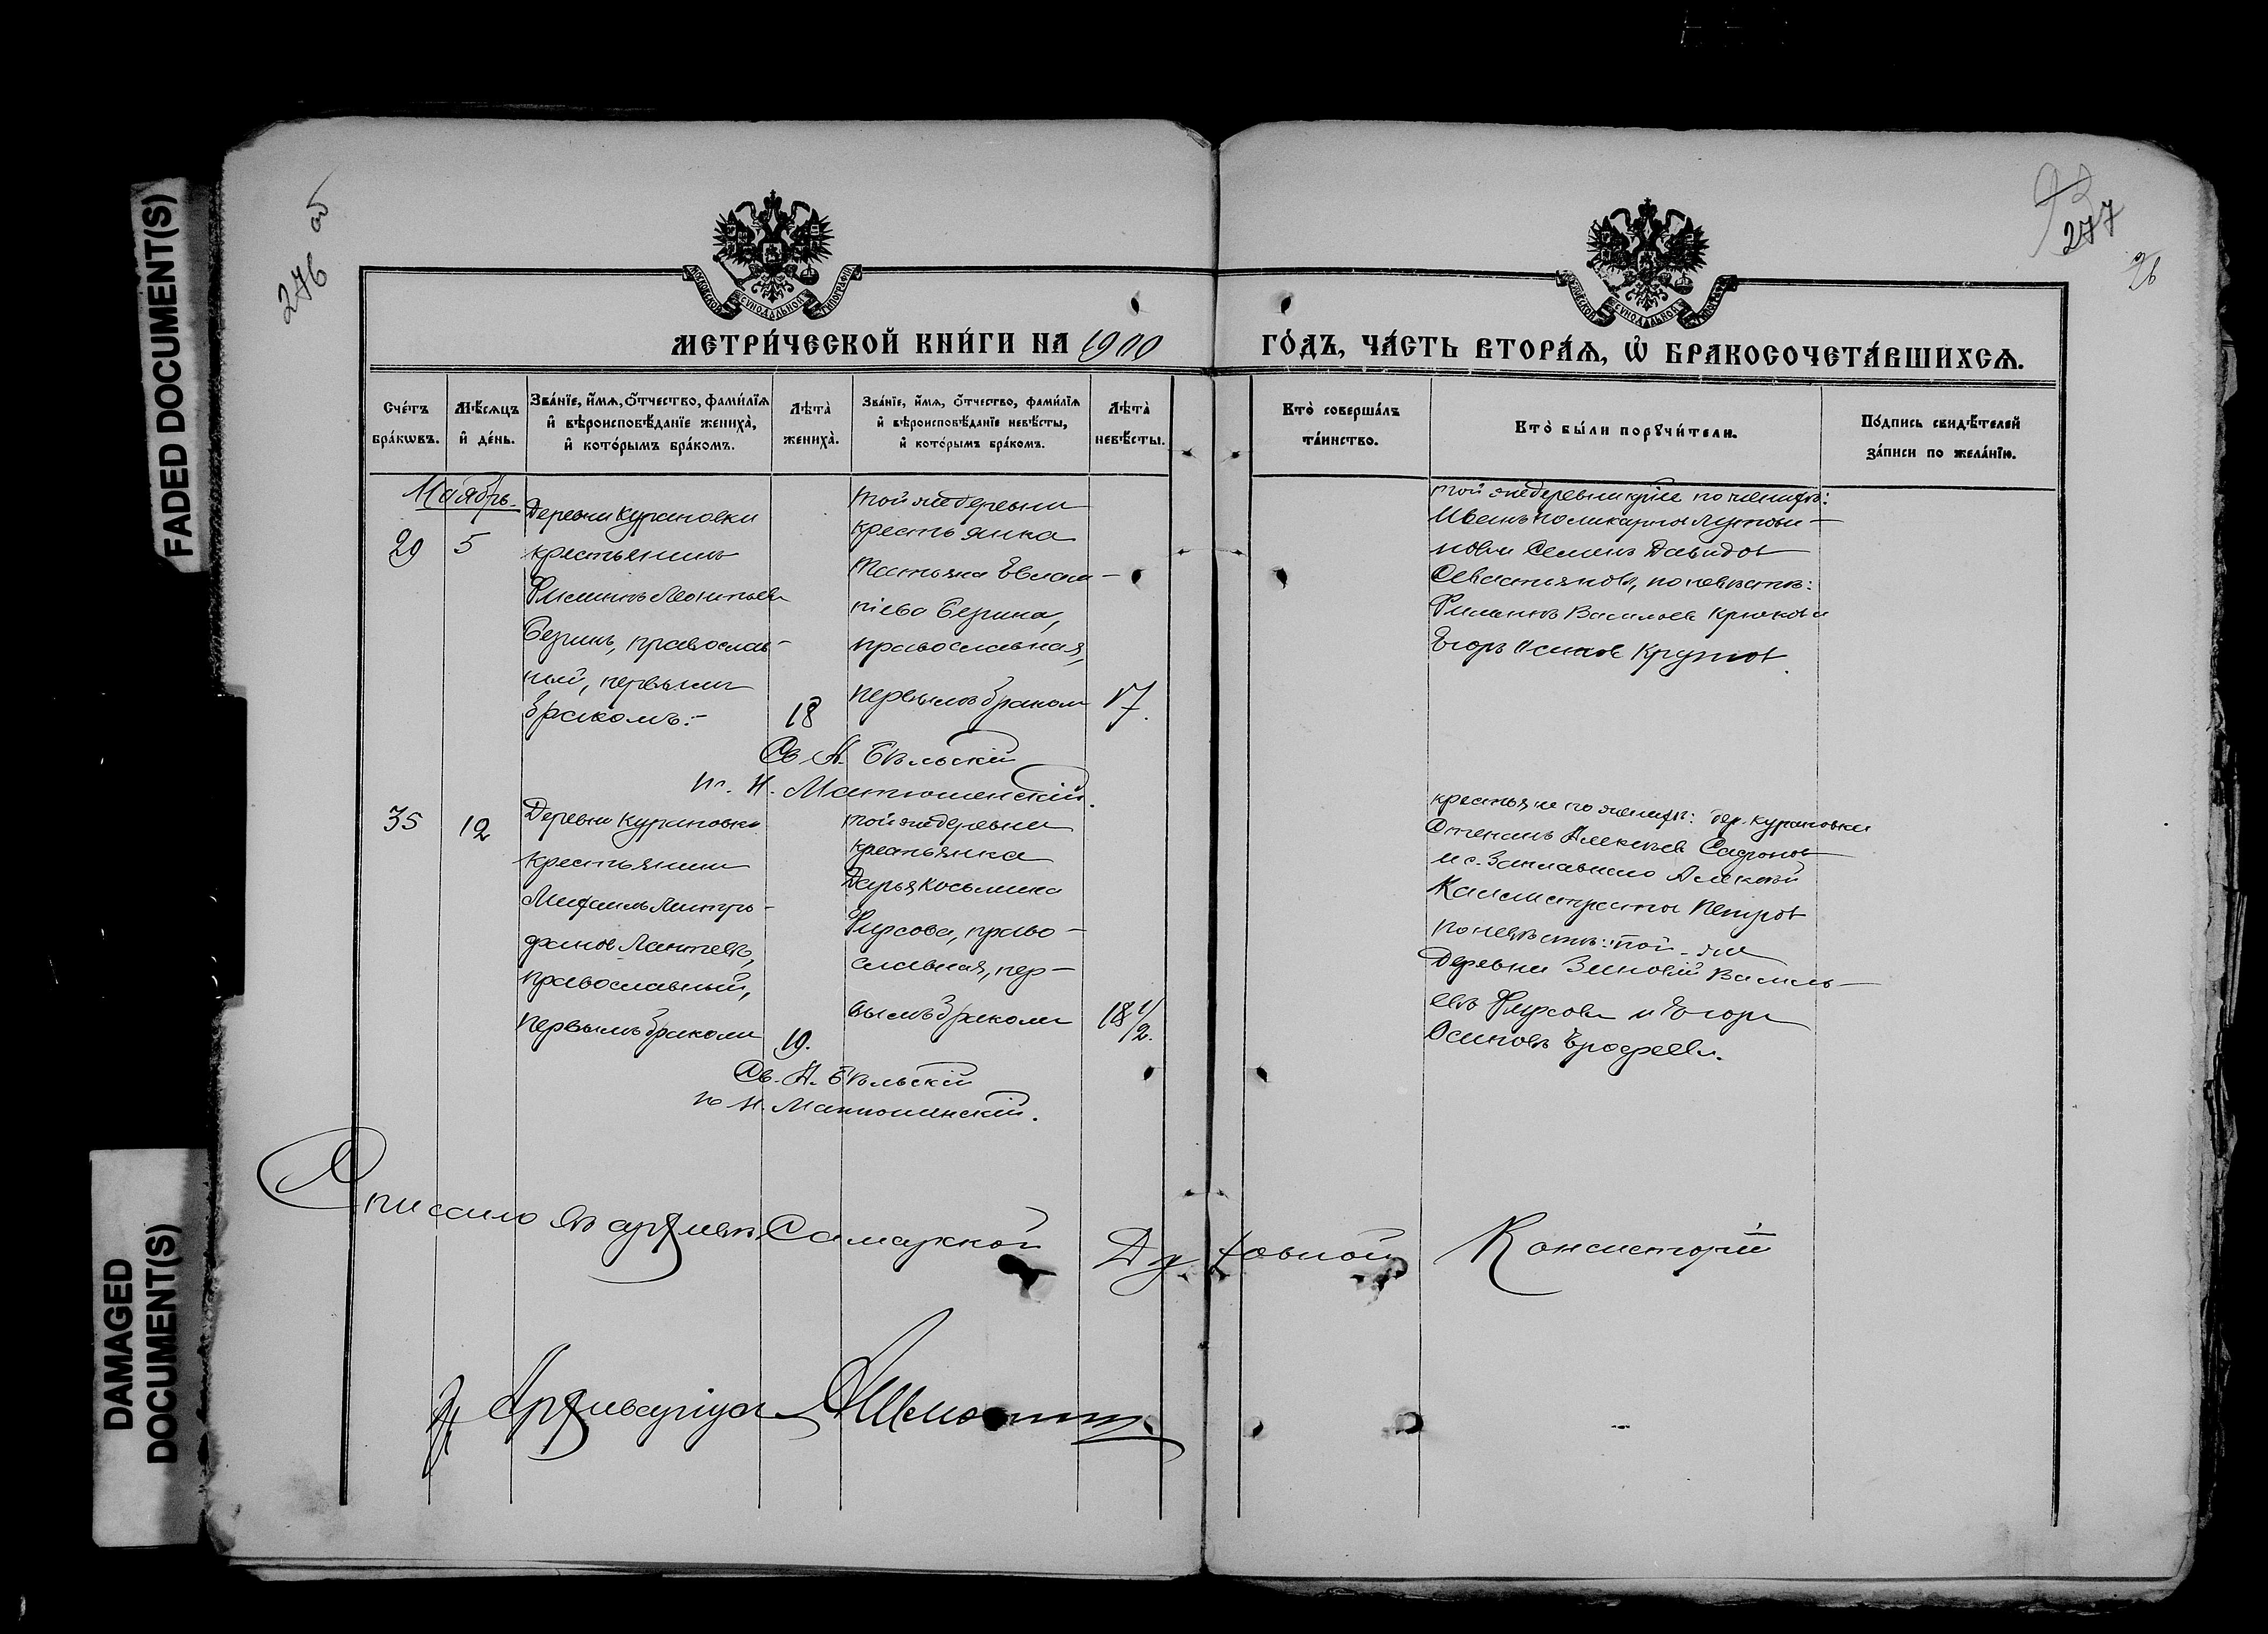 FADED DOCUMENT(S)
DAMAGED
DOCUMENT(S)
276 об
277
26
МОСКОВСКОЙ СѴНОДАЛЬНОЙ ТИПОГРАФІИ
МОСКОВСКОЙ СѴНОДАЛЬНОЙ ТИПОГРАФІИ
МЕТРИ́ЧЕСКОЙ КНИ́ГИ НА 1900 ГО́ДЪ, ЧА́СТЬ ВТОРА́Ѧ, Ѽ БРАКОСОЧЕТА́ВШИХСѦ.
Сче́тъ
бра́кѡвъ.
Мѣ́сѧцъ
и҆ де́нь.
Зва́нїе, и҆́мѧ, о҆́тчество, фами́лїѧ
и҆ вѣроисповѣ́данїе жениха̀,
и҆ кото́рымъ бра́комъ.
Лѣта̀
жениха̀.
Зва́нїе, и҆́мѧ, о҆́тчество, фами́лїѧ
и҆ вѣроисповѣ́данїе невѣ́сты,
и҆ кото́рымъ бра́комъ.
Лѣта̀
невѣ́сты.
Кто̀ соверша́лъ
та́инство.
Кто̀ бы́ли порꙋчи́тели.
По́дпись свидѣ́телей
за́писи по жела́нїю.
Ноябрь.
29
5
Деревни Курановки
крестьянинъ
Филиппъ Леонтьевъ
Безинъ, православ-
ный, первымъ
бракомъ.-
18
той же деревни
крестьянка
Татьяна Евлам-
піева Безина,
православная,
первымъ бракомъ
17.
той же деревни по женихѣ:
Иванъ Поликарповъ
новъ и Семенъ Давидовъ
Севастьяновъ, по невѣстѣ:
Филиппъ Васильевъ Крюковъ и
Егоръ Осиповъ Крутовъ.
Св А. Бѣльскій
пс. Н. Матюшенскій.
35
12
Деревни Курановки
крестьянинъ
Михаилъ Митро-
фановъ Лаптевъ,
православный,
первымъ бракомъ
19.
той же деревни
крестьянка
Дарья Косьмина
Фирсова, право-
славная, пер-
вымъ бракомъ
18 1/2.
крестьяне по женихѣ: дер. Курановки
Степанъ Алексѣев Сафоновъ
и с. Заплавнаго Алексѣй
Каллистратовъ Петровъ
по невѣстѣ: той-же
деревни Зиновій Василь-
евъ Фирсовъ и Егоръ
Осиповъ Ерофеевъ.
Св. А. Бѣльскій
пс Н. Матюшенскій.
Списано въ архивъ Самарской Духовной Консисторіи
Архиваріуса